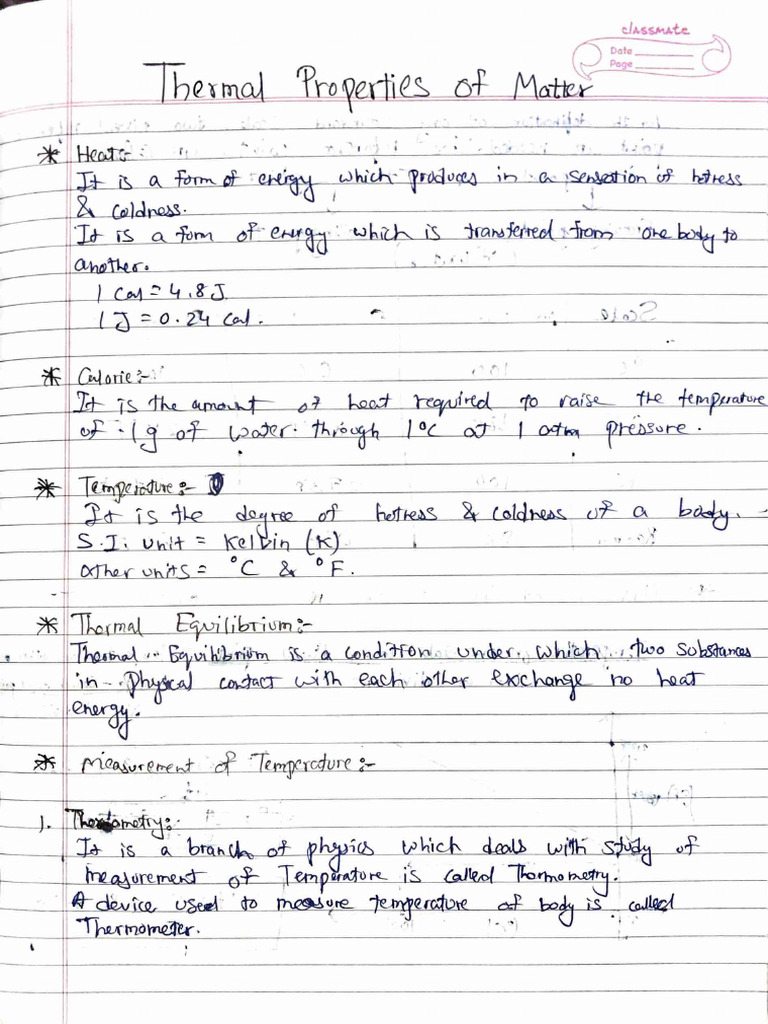 classmate
Date
Page
Thermal Properties of Matter
* Heat:-
It is a form of energy which produces in a sensation of hotness
& coldness.
It is a form of energy which is transferred from one body to
another.
1 Cal = 4.8 J
1 J = 0.24 cal.
* Calorie:-
It is the amount of heat required to raise the temperature
of 1g of water through 1°C at 1 atm pressure.
* Temperature:-
It is the degree of hotness & coldness of a body.
S.I. unit = Kelvin (K)
Other units = °C & °F.
* Thermal Equilibrium:-
Thermal Equilibrium is a condition under which two substances
in physical contact with each other exchange no heat
energy.
* Measurement of Temperature:-
1. Thermometry:-
It is a branch of physics which deals with study of
measurement of Temperature is called Thormometry.
A device used to measure temperature of body is called
Thermometer.